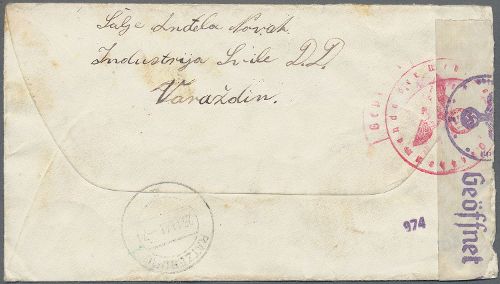 Šalje Anđela Novak.
Industrija Svile D.D.
Varaždin.
974
Geöffnet